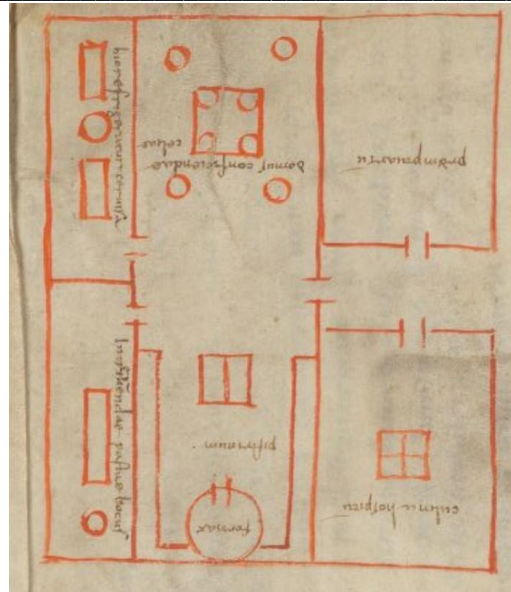 hic refrigeratur ceruisa
domus conficiendae
celiae
promptuariū
pastae locus
pistrinum
fornax
culina hospitū